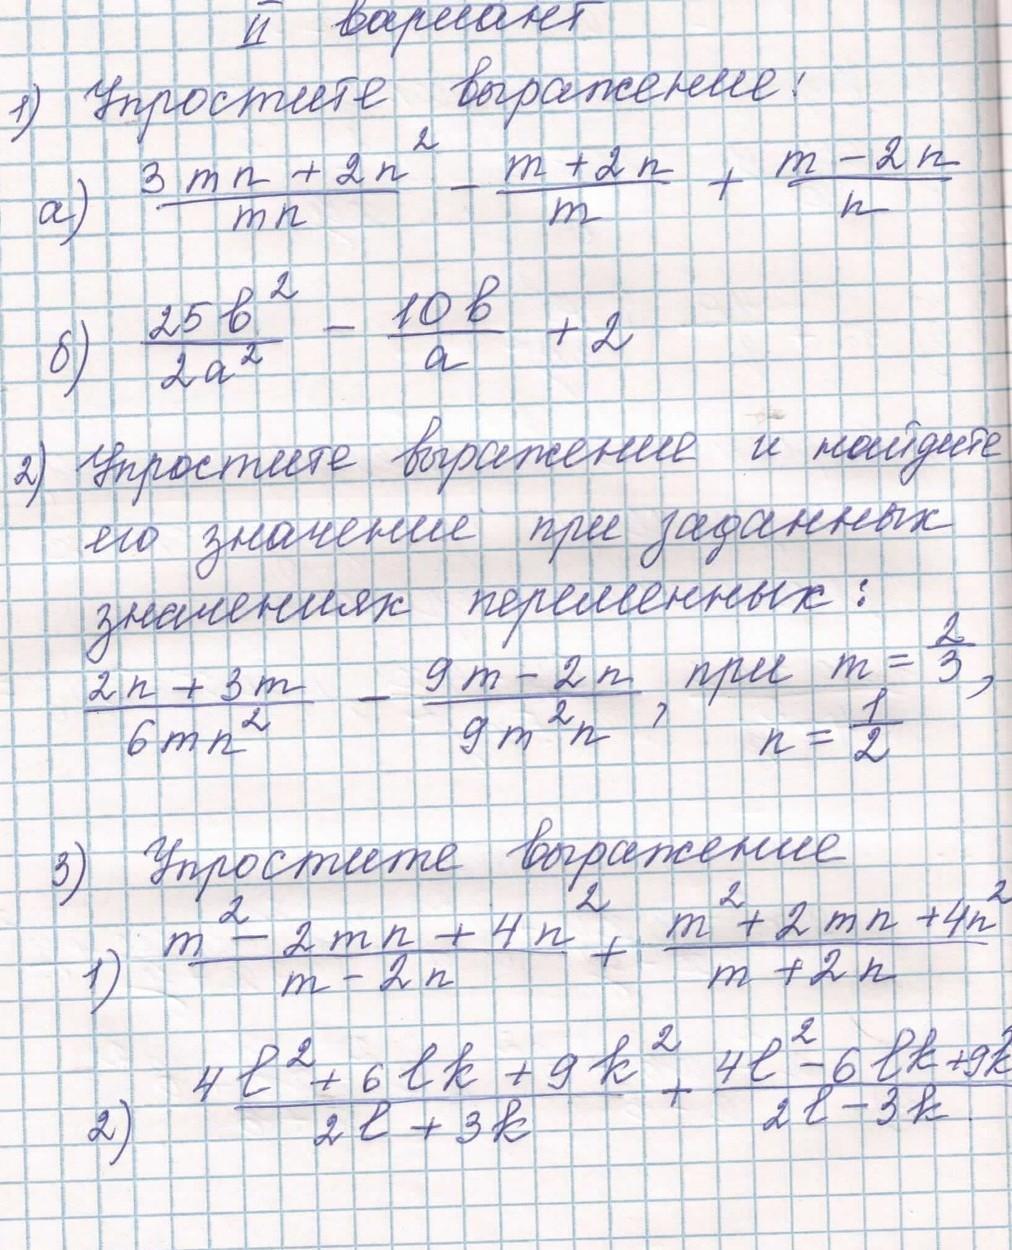 II вариант
1) Упростите выражение:
а) \frac{3mn + 2n^2}{mn} - \frac{m + 2n}{m} + \frac{m - 2n}{n}
б) \frac{25b^2}{2a^2} - \frac{10b}{a} + 2
2) Упростите выражение и найдите
его значение при заданных
значениях переменных:
\frac{2n + 3m}{6mn^2} - \frac{9m - 2n}{9m^2n}, при m = \frac{2}{3},
n = \frac{1}{2}
3) Упростите выражение
1) \frac{m^2 - 2mn + 4n^2}{m - 2n} + \frac{m^2 + 2mn + 4n^2}{m + 2n}
2) \frac{4l^2 + 6lk + 9k^2}{2l + 3k} + \frac{4l^2 - 6lk + 9k^2}{2l - 3k}